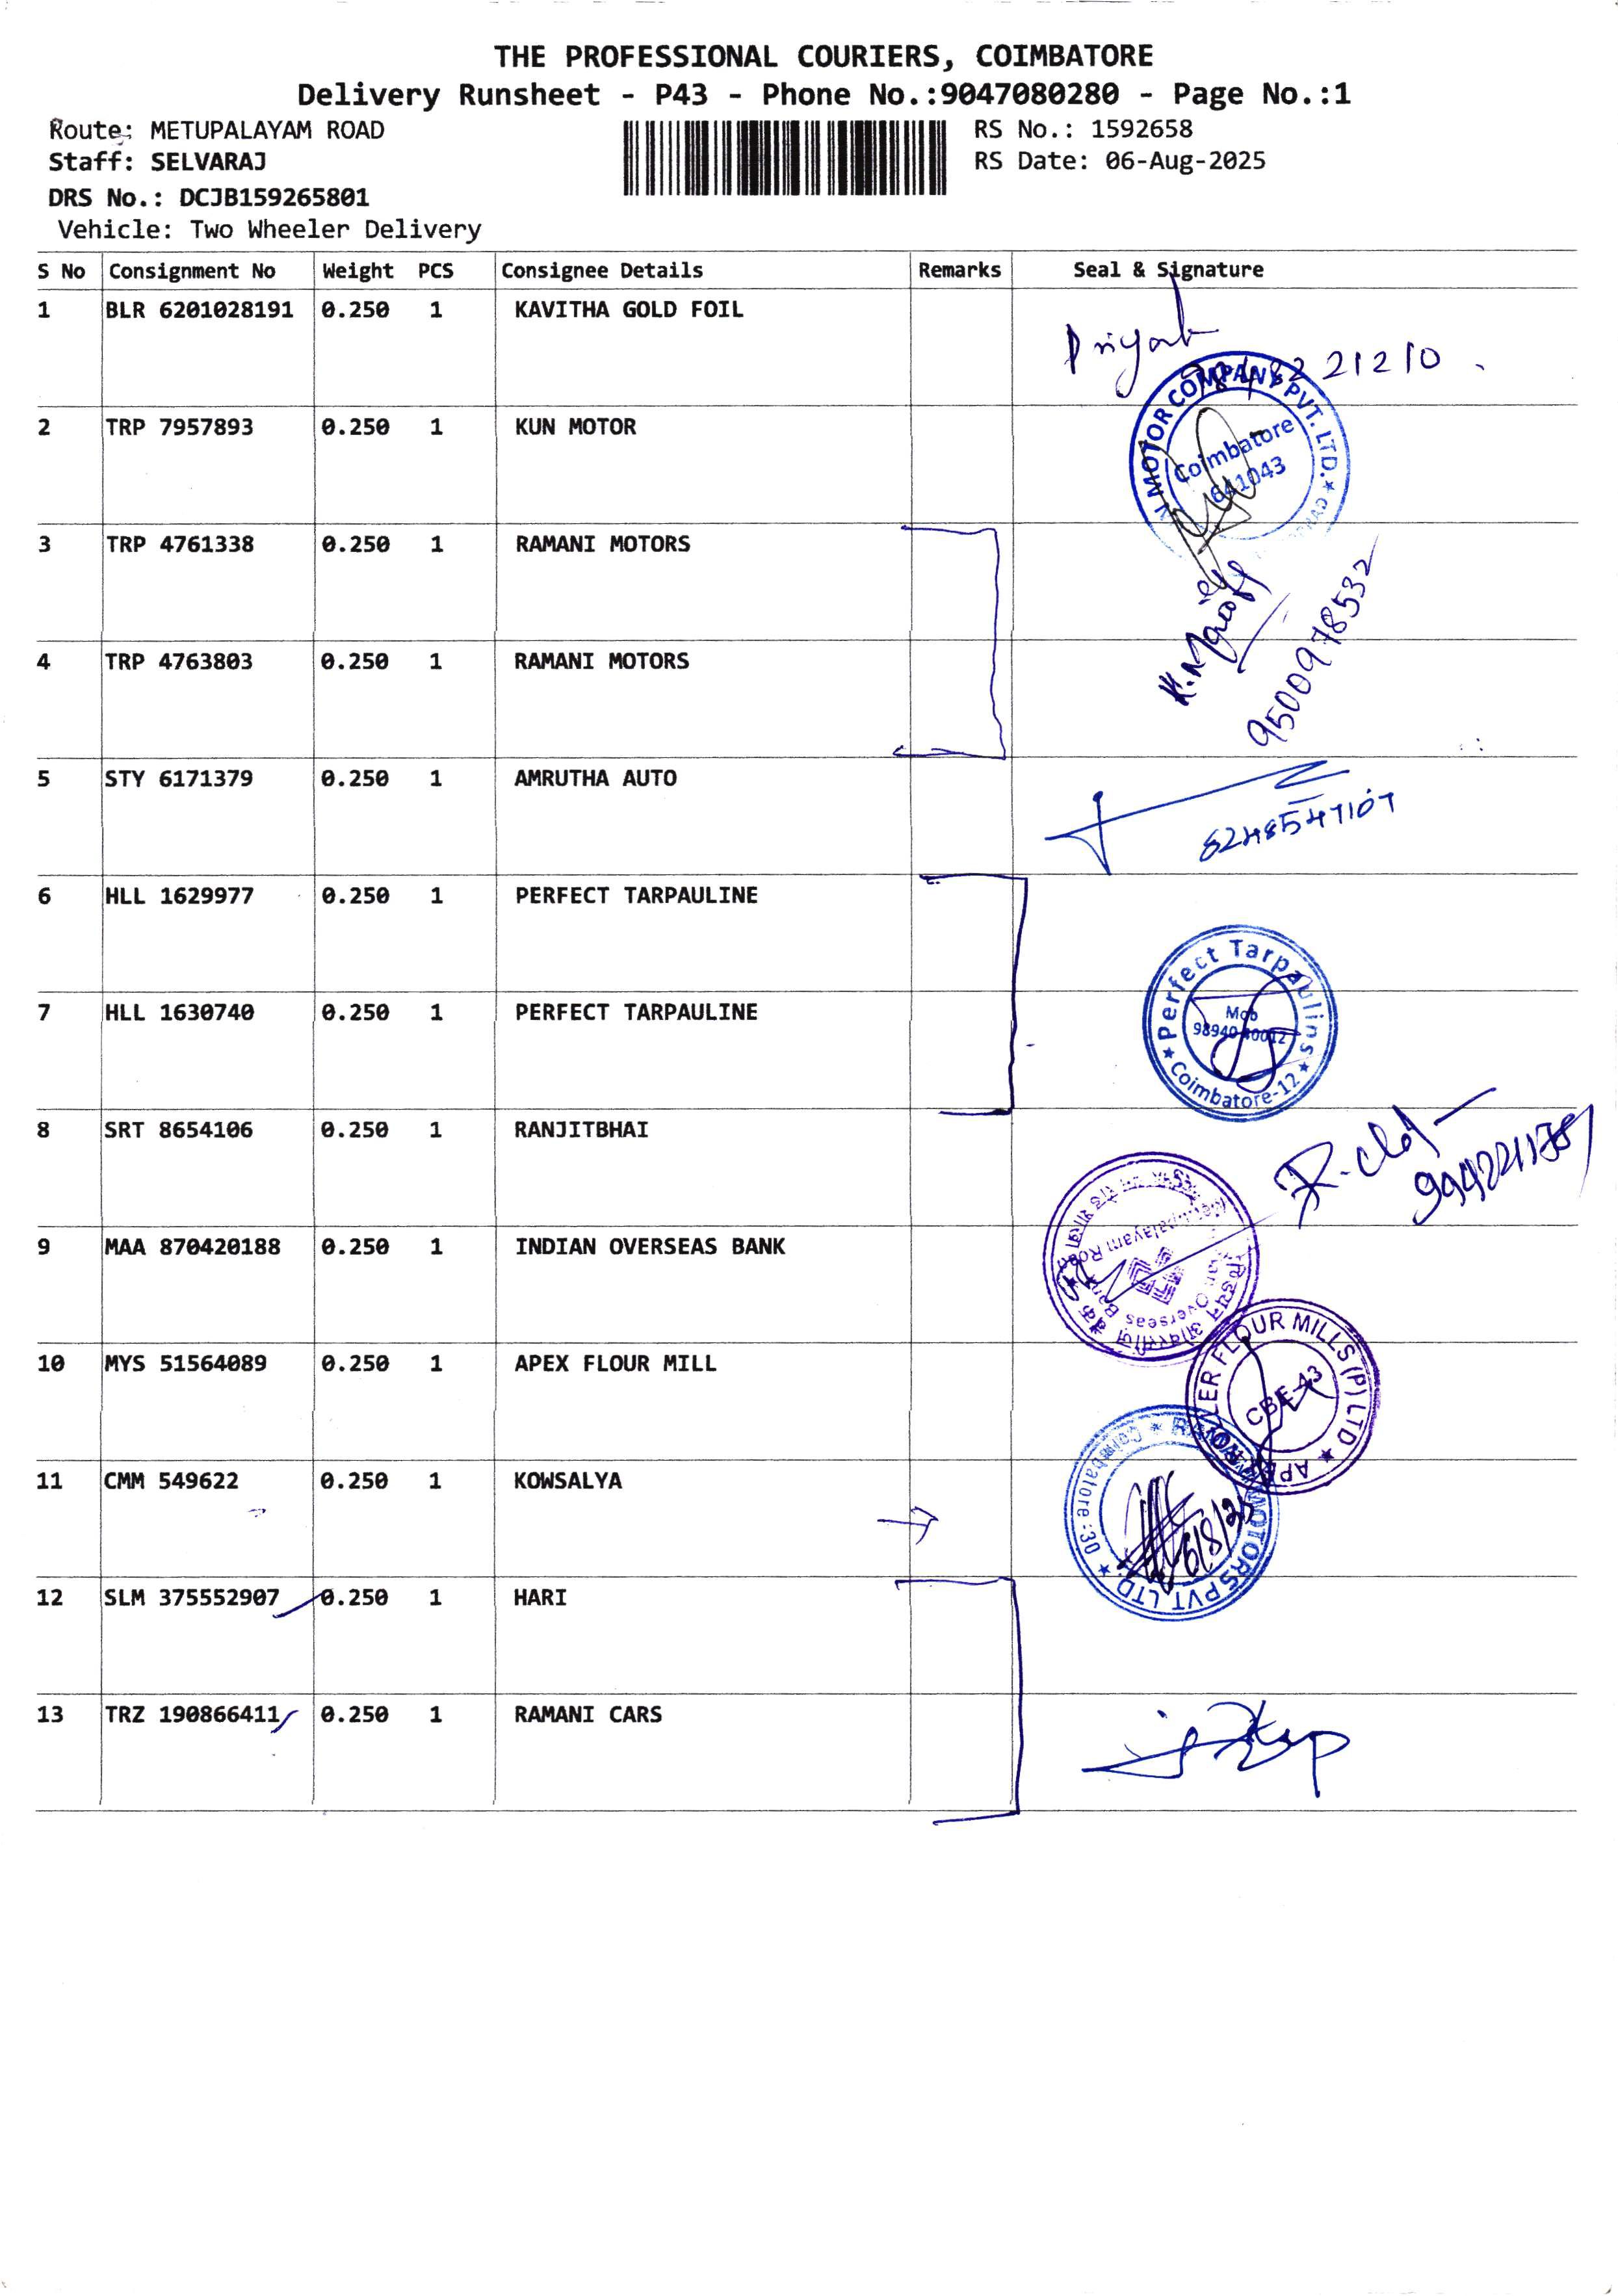 THE PROFESSIONAL COURIERS, COIMBATORE
Delivery Runsheet - P43 - Phone No.:9047080280 - Page No.:1
Route: METUPALAYAM ROAD
RS No.: 1592658
Staff: SELVARAJ
RS Date: 06-Aug-2025
DRS No.: DCJB159265801
Vehicle: Two Wheeler Delivery
S No Consignment No Weight PCS Consignee Details Remarks Seal & Signature
1 BLR 6201028191 0.250 1 KAVITHA GOLD FOIL
21210
2 TRP 7957893 0.250 1 KUN MOTOR
MOTOR COMPANY PVT. LTD.
Coimbatore
641043
3 TRP 4761338 0.250 1 RAMANI MOTORS
9500978532
4 TRP 4763803 0.250 1 RAMANI MOTORS
5 STY 6171379 0.250 1 AMRUTHA AUTO
8248547107
6 HLL 1629977 0.250 1 PERFECT TARPAULINE
Perfect Tarpaulins
Mob
Coimbatore-12
7 HLL 1630740 0.250 1 PERFECT TARPAULINE
8 SRT 8654106 0.250 1 RANJITBHAI
9 MAA 870420188 0.250 1 INDIAN OVERSEAS BANK
Overseas Bank
10 MYS 51564089 0.250 1 APEX FLOUR MILL
FLOUR MILLS (P) LTD
CBE-43
11 CMM 549622 0.250 1 KOWSALYA
MOTORS PVT LTD
Coimbatore:30
6/8/25
12 SLM 375552907 0.250 1 HARI
13 TRZ 190866411 0.250 1 RAMANI CARS